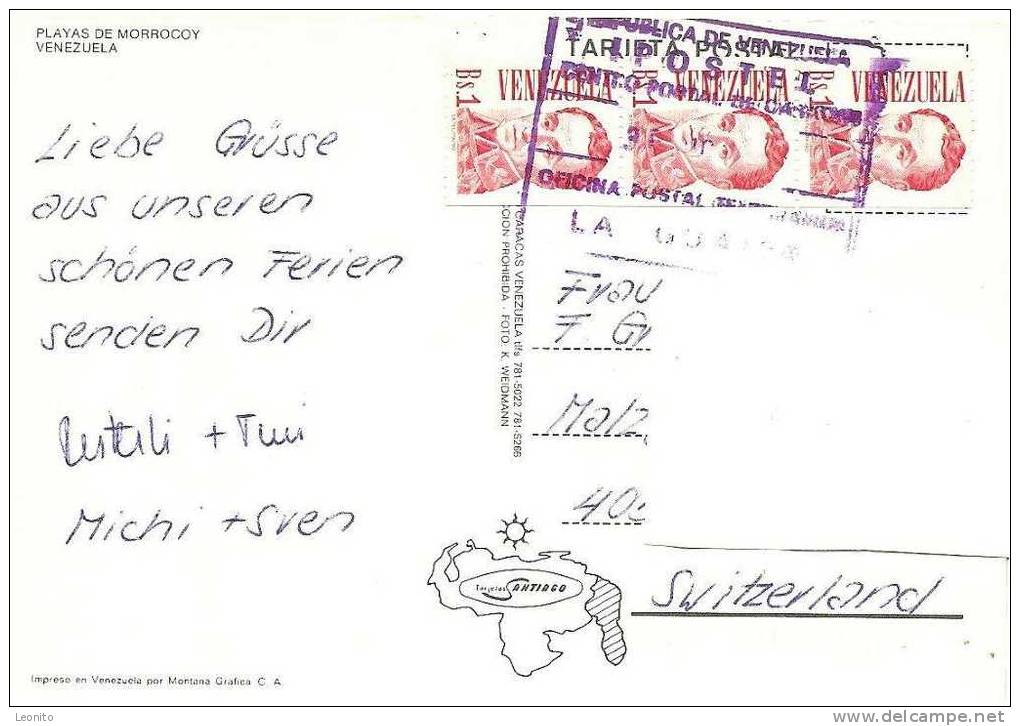 PLAYAS DE MORROCOY
VENEZUELA
Liebe Grüsse
aus unseren
schönen Ferien
senden Dir
+
Michi + Sven
Impreso en Venezuela por Montana Grafica C. A.
TARJETA POSTAL
Bs.1 VENEZUELA
Bs.1 VENEZUELA
Bs.1 VENEZUELA
REPUBLICA DE VENEZUELA
IPOSTEL
CENTRO POSTAL DE
OFICINA POSTAL
LA GUAIRA
CARACAS VENEZUELA tlfs 781-5022 781-5266
CION PROHIBIDA - FOTO: K. WEIDMANN
Frau
F. Gr
Malz
40
Switzerland
Tarjetas SANTIAGO
Leonito
www.delcampe.net